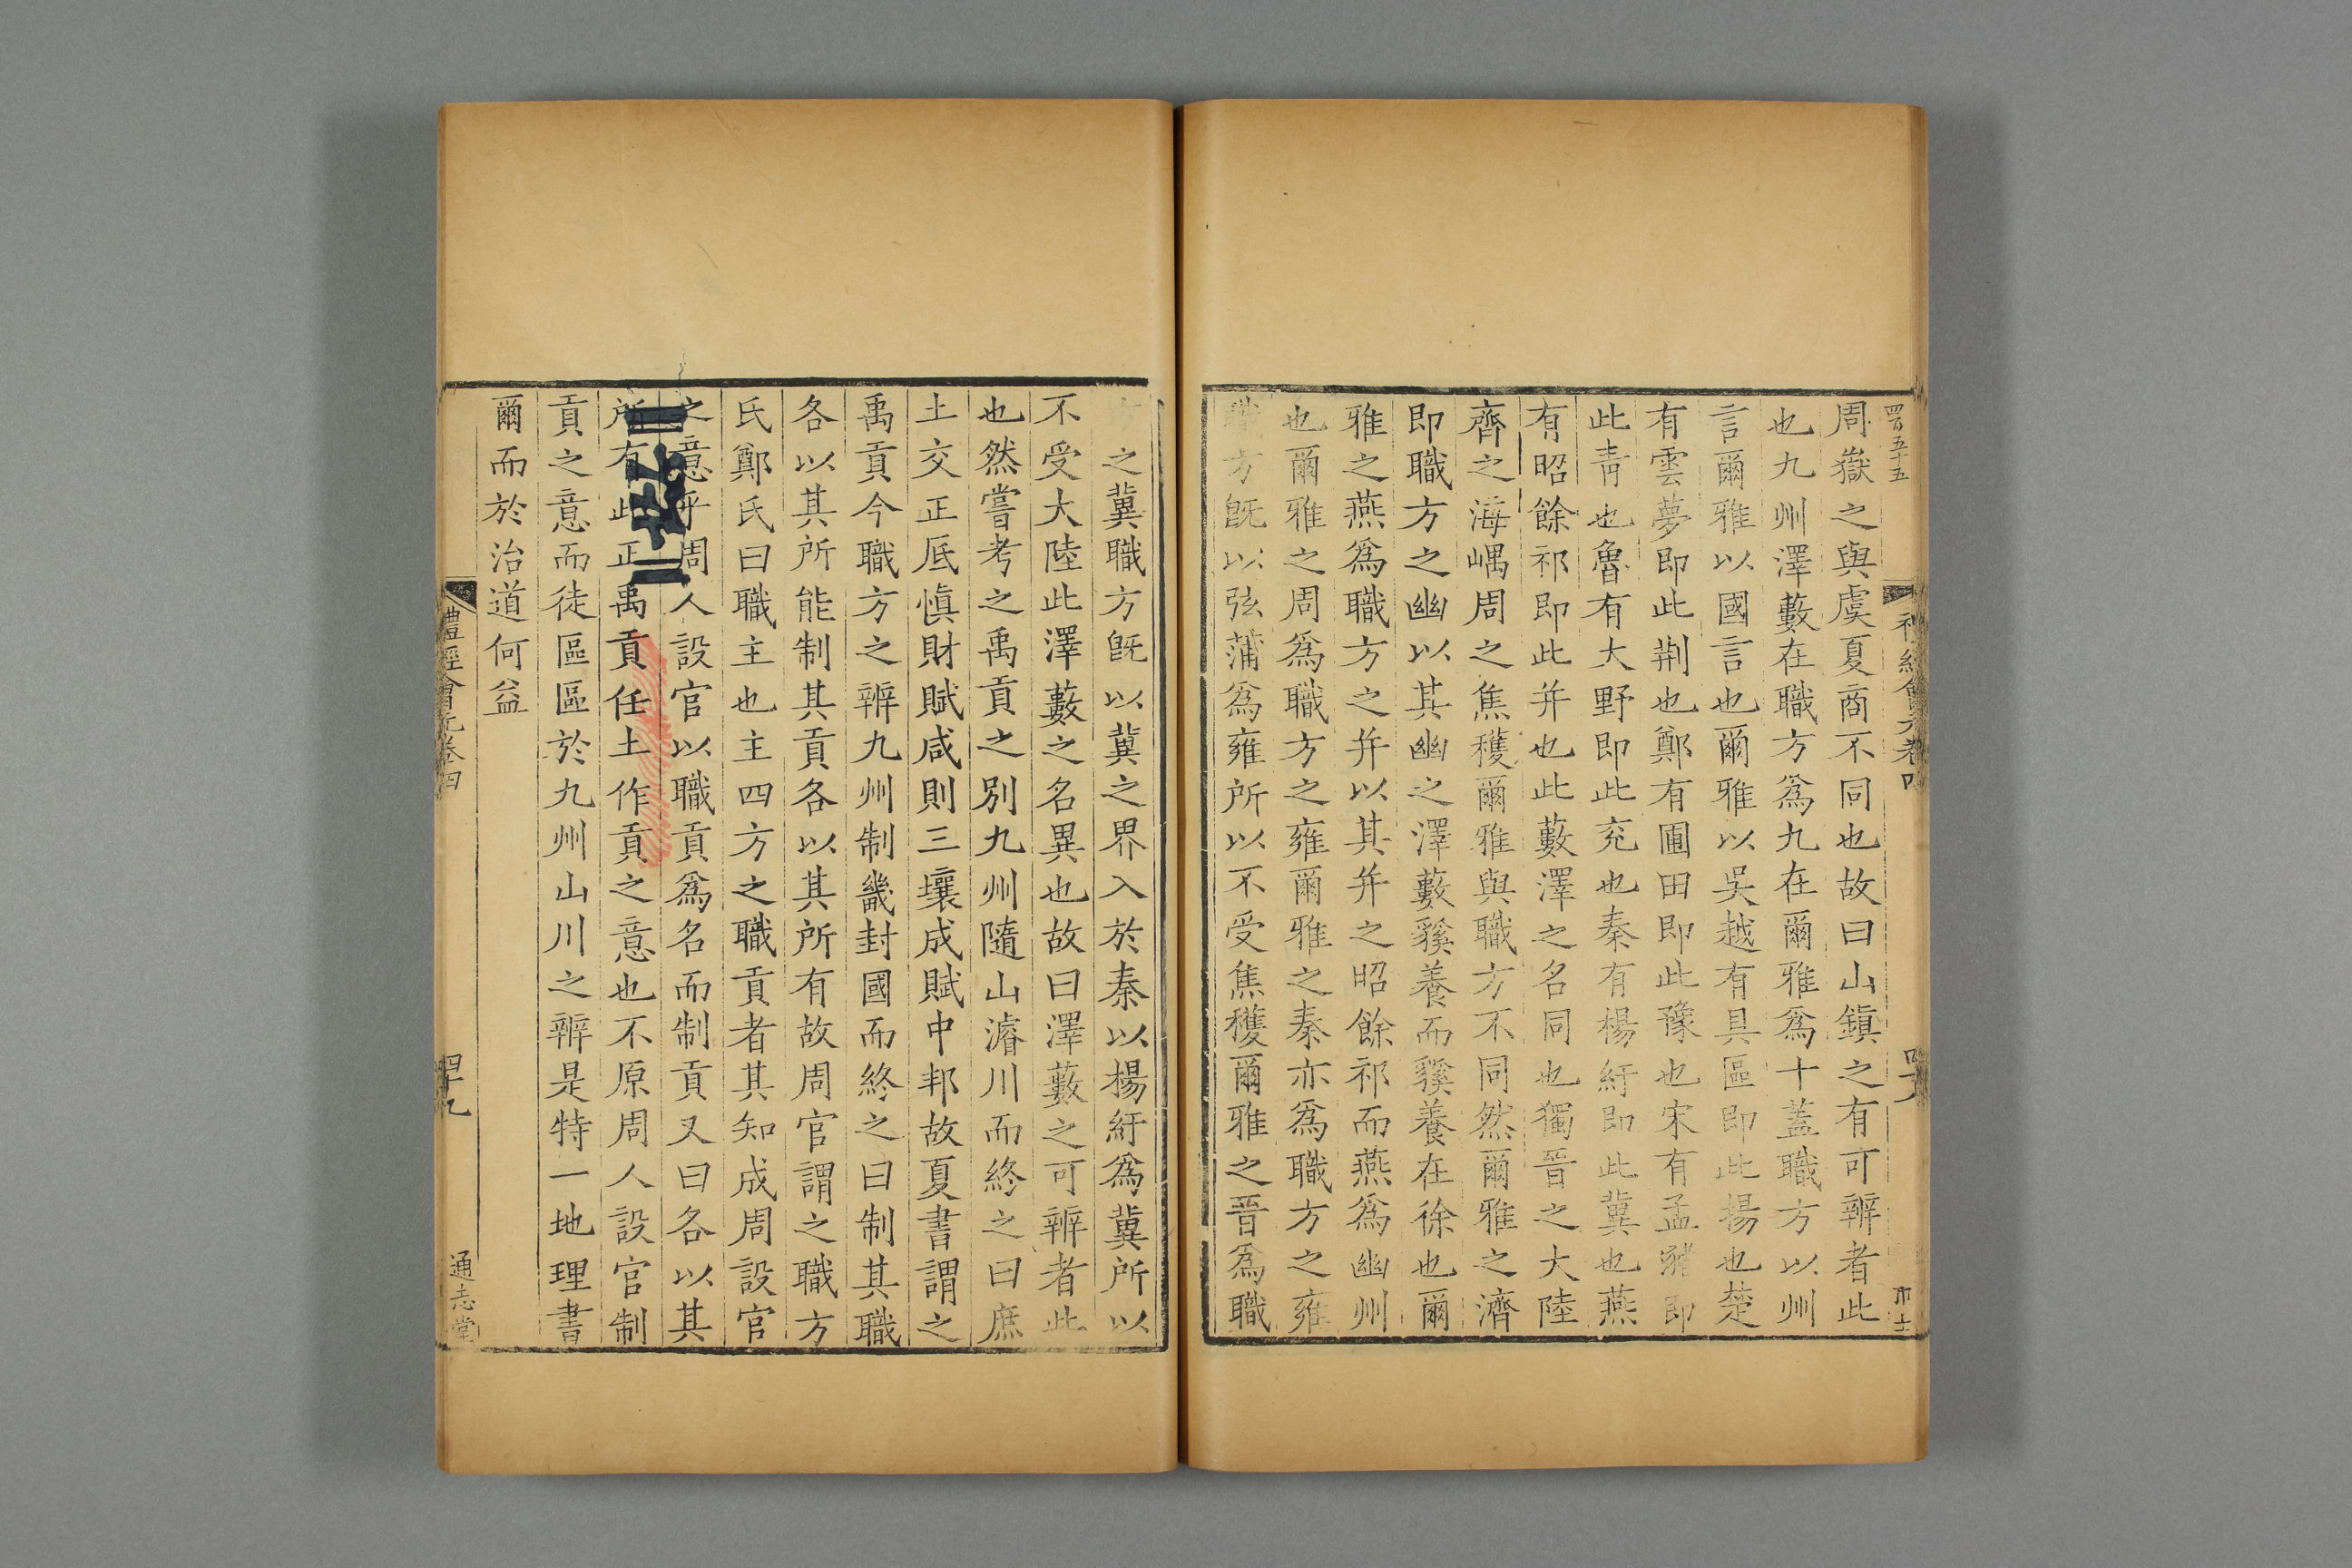 周嶽之與虞夏商不同也故曰山鎮之有可辨者此
也九州澤藪在職方爲九在爾雅爲十蓋職方以州
言爾雅以國言也爾雅以吳越有具區即此揚也楚
有雲夢即此荆也鄭有圃田即此豫也宋有孟豬即
此青也魯有大野即此兖也秦有楊紆即此冀也燕
有昭餘祁即此并也此藪澤之名同也獨晉之大陸
齊之海嵎周之焦穫爾雅與職方不同然爾雅之濟
即職方之幽以其幽之澤藪豯養而豯養在徐也爾
雅之燕爲職方之并以其并之昭餘祁而燕爲幽州
也爾雅之周爲職方之雍爾雅之秦亦爲職方之雍
職方旣以弦蒲爲雍所以不受焦穫爾雅之晉爲職
之冀職方旣以冀之界入於秦以楊紆爲冀所以
不受大陸此澤藪之名異也故曰澤藪之可辨者此
也然嘗考之禹貢之別九州隨山濬川而終之曰庶
土交正厎慎財賦咸則三壤成賦中邦故夏書謂之
禹貢今職方之辨九州制畿封國而終之曰制其職
各以其所能制其貢各以其所有故周官謂之職方
氏鄭氏曰職主也主四方之職貢者其知成周設官
之意乎周人設官以職貢爲名而制貢又曰各以其
所有此正禹貢任土作貢之意也不原周人設官制
貢之意而徒區區於九州山川之辨是特一地理書
爾而於治道何益
禮經會元卷四
四十九
通志堂